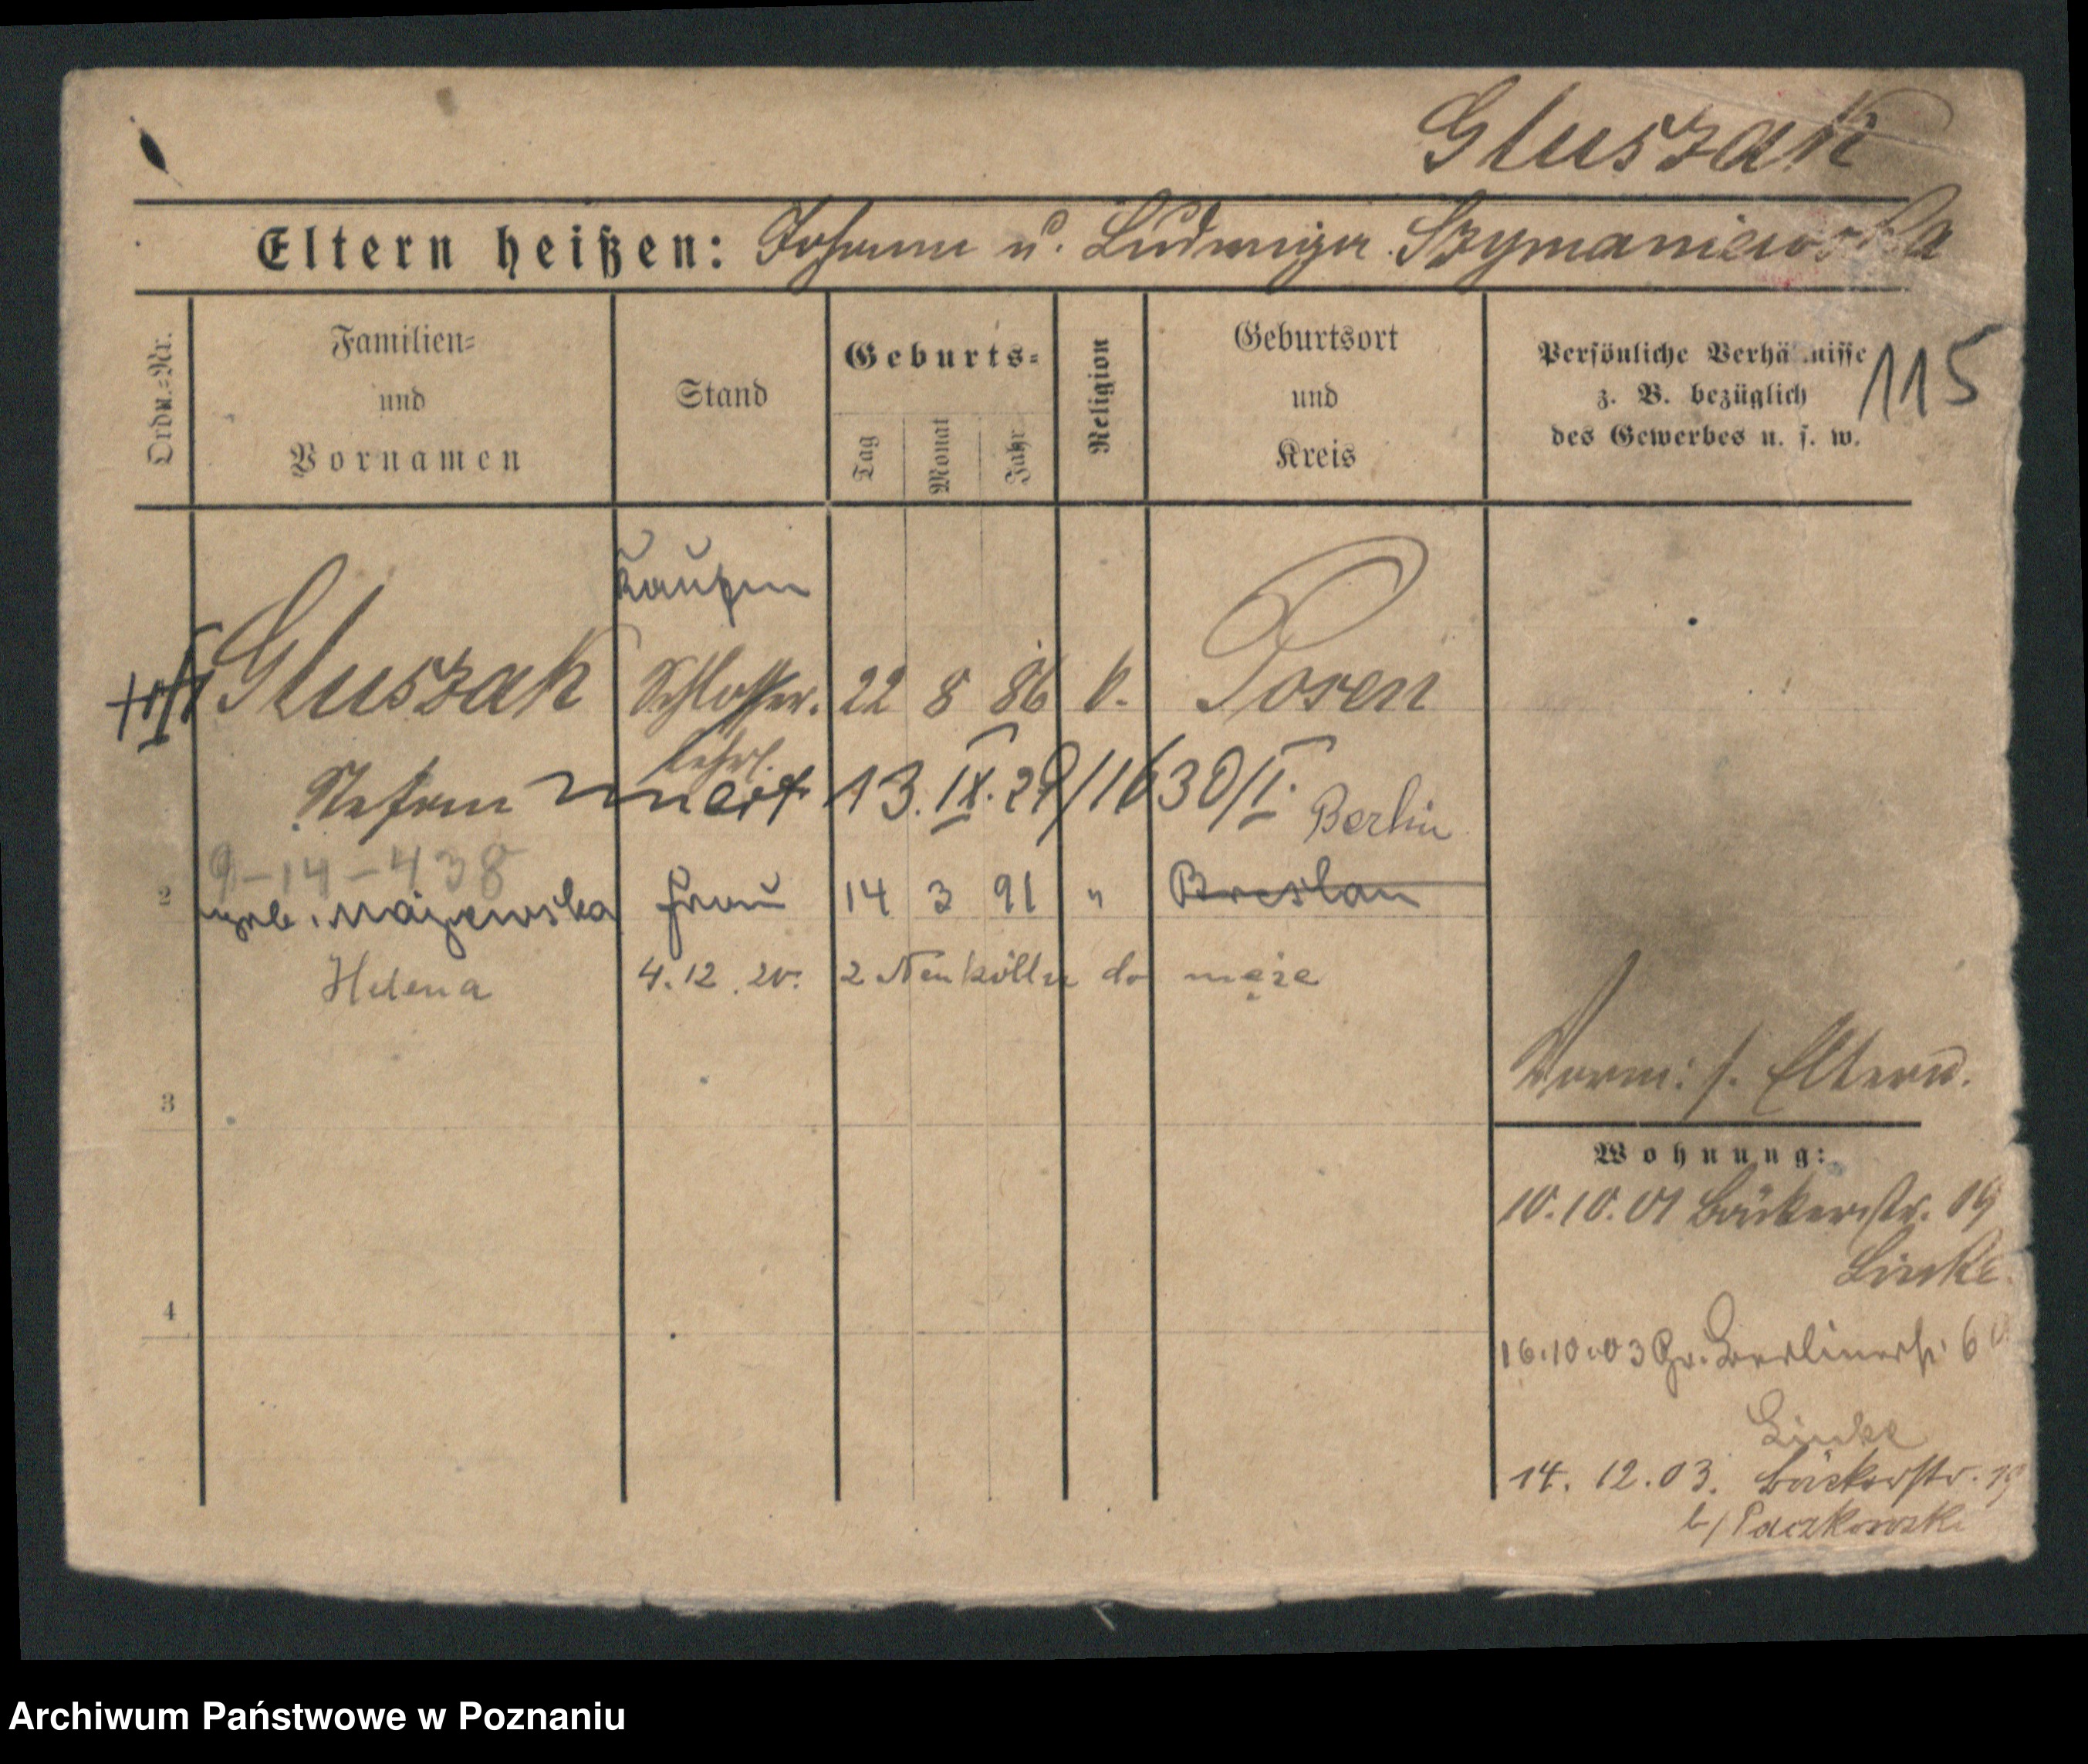 Gluszak
Eltern heißen: Johann u. Ludwiga Szymaniewska
Ordn.-Nr.
Familien-
und
Vornamen
Stand
Geburts-
Tag
Monat
Jahr
Religion
Geburtsort
und
Kreis
Persönliche Verhältnisse
z. B. bezüglich
des Gewerbes u. s. w.
115
Kaufm
Gluszak Schlosser. 22 8 86 k. Posen
lehrl.
Stefan 13. IX. 29/11630/II.
Berlin
9-14-438
2 Frau 14 3 91 " Breslau
Helena 4.12.20. 2 Neukölln do męża
3
4
Verm: s. Eltern.
Wohnung:
10.10.01 Bäckerstr. 19
Linke.
16.10.03 Gr. Berlinerstr. 60
Linke
14. 12. 03. Bäckerstr. 19
b/ Paczkowski
Archiwum Państwowe w Poznaniu